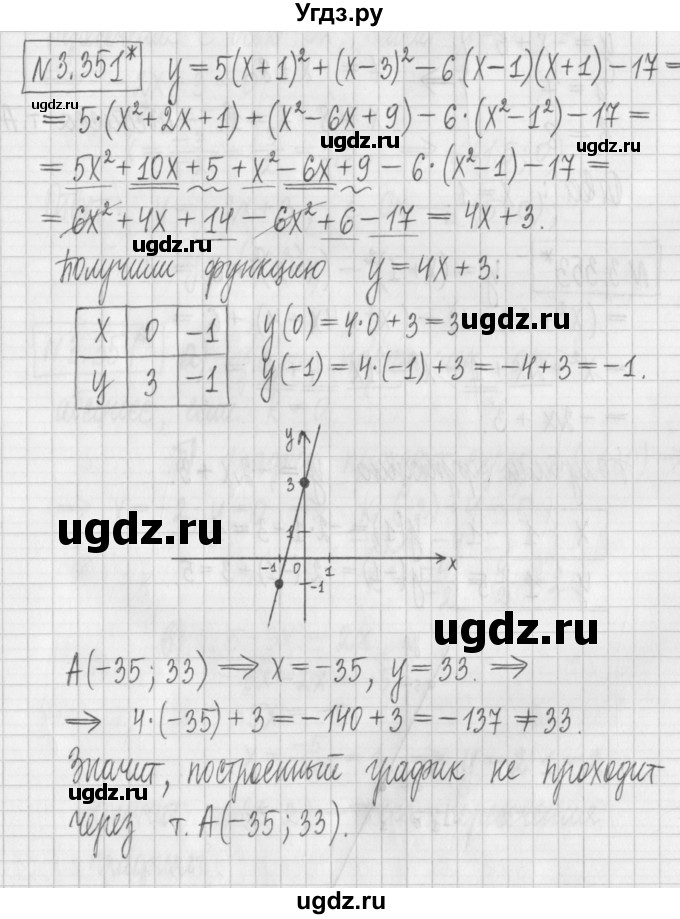 Угдз.ру
№3.351* y=5(x+1)²+(x-3)²-6(x-1)(x+1)-17=
ugdz.ru
=5·(x²+2x+1)+(x²-6x+9)-6·(x²-1²)-17=
ugdz.ru
=5x²+10x+5+x²-6x+9-6·(x²-1)-17=
ugdz.ru
=6x²+4x+14-6x²+6-17=4x+3.
ugdz.ru
Получили функцию y=4x+3:
x 0 -1 y(0)=4·0+3=3
ugdz.ru
y 3 -1 y(-1)=4·(-1)+3=-4+3=-1.
y
3
ugdz.ru
1
-1 0 1 x
-1
ugdz.ru
A(-35; 33) ⇒ x=-35, y=33. ⇒
ugdz.ru
⇒ 4·(-35)+3=-140+3=-137≠33.
Значит, построенный график не проходит
ugdz.ru
ugdz.ru
через т. A(-35; 33).
ugdz.ru